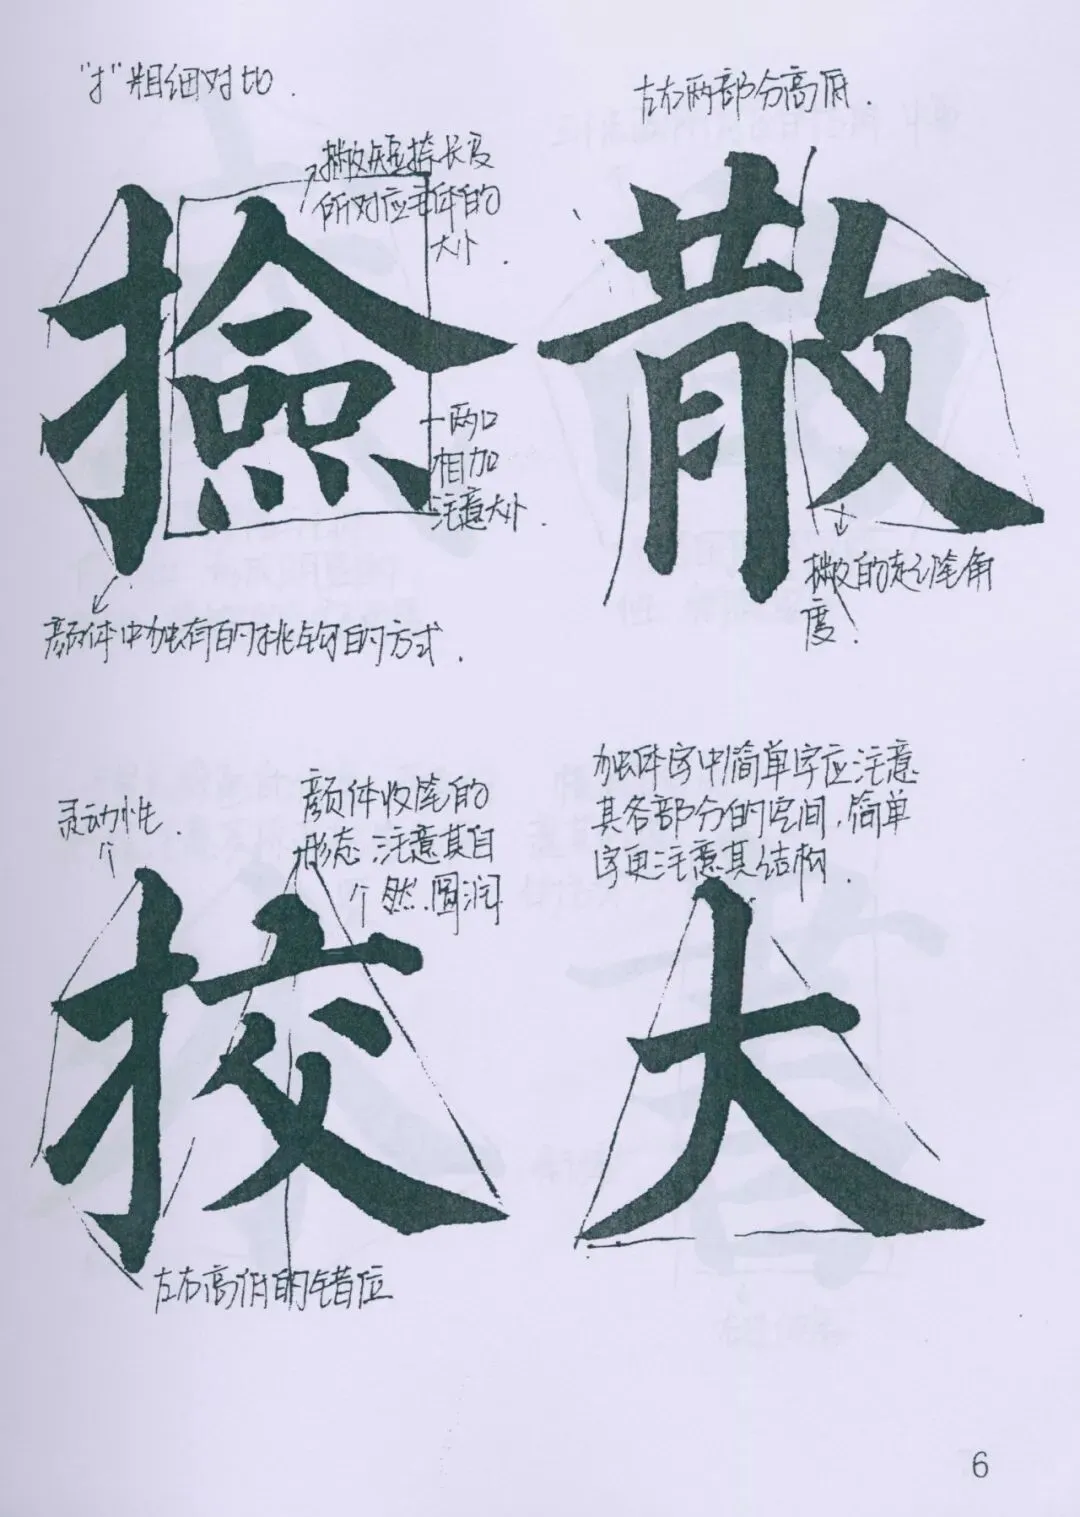 “扌”粗细对比.
撇短捺长及
所对应主体的
大小.
捡
一两口
相加
注意大小.
颜体中独有的挑钩的方式.
左右两部分高低.
散
撇的起笔角
度.
灵动性.
颜体收笔的
形态.注意其自
然.圆润
挍
左右高低的错位
独体字中简单字应注意
其各部分的空间,简单
字更注意其结构.
大
6